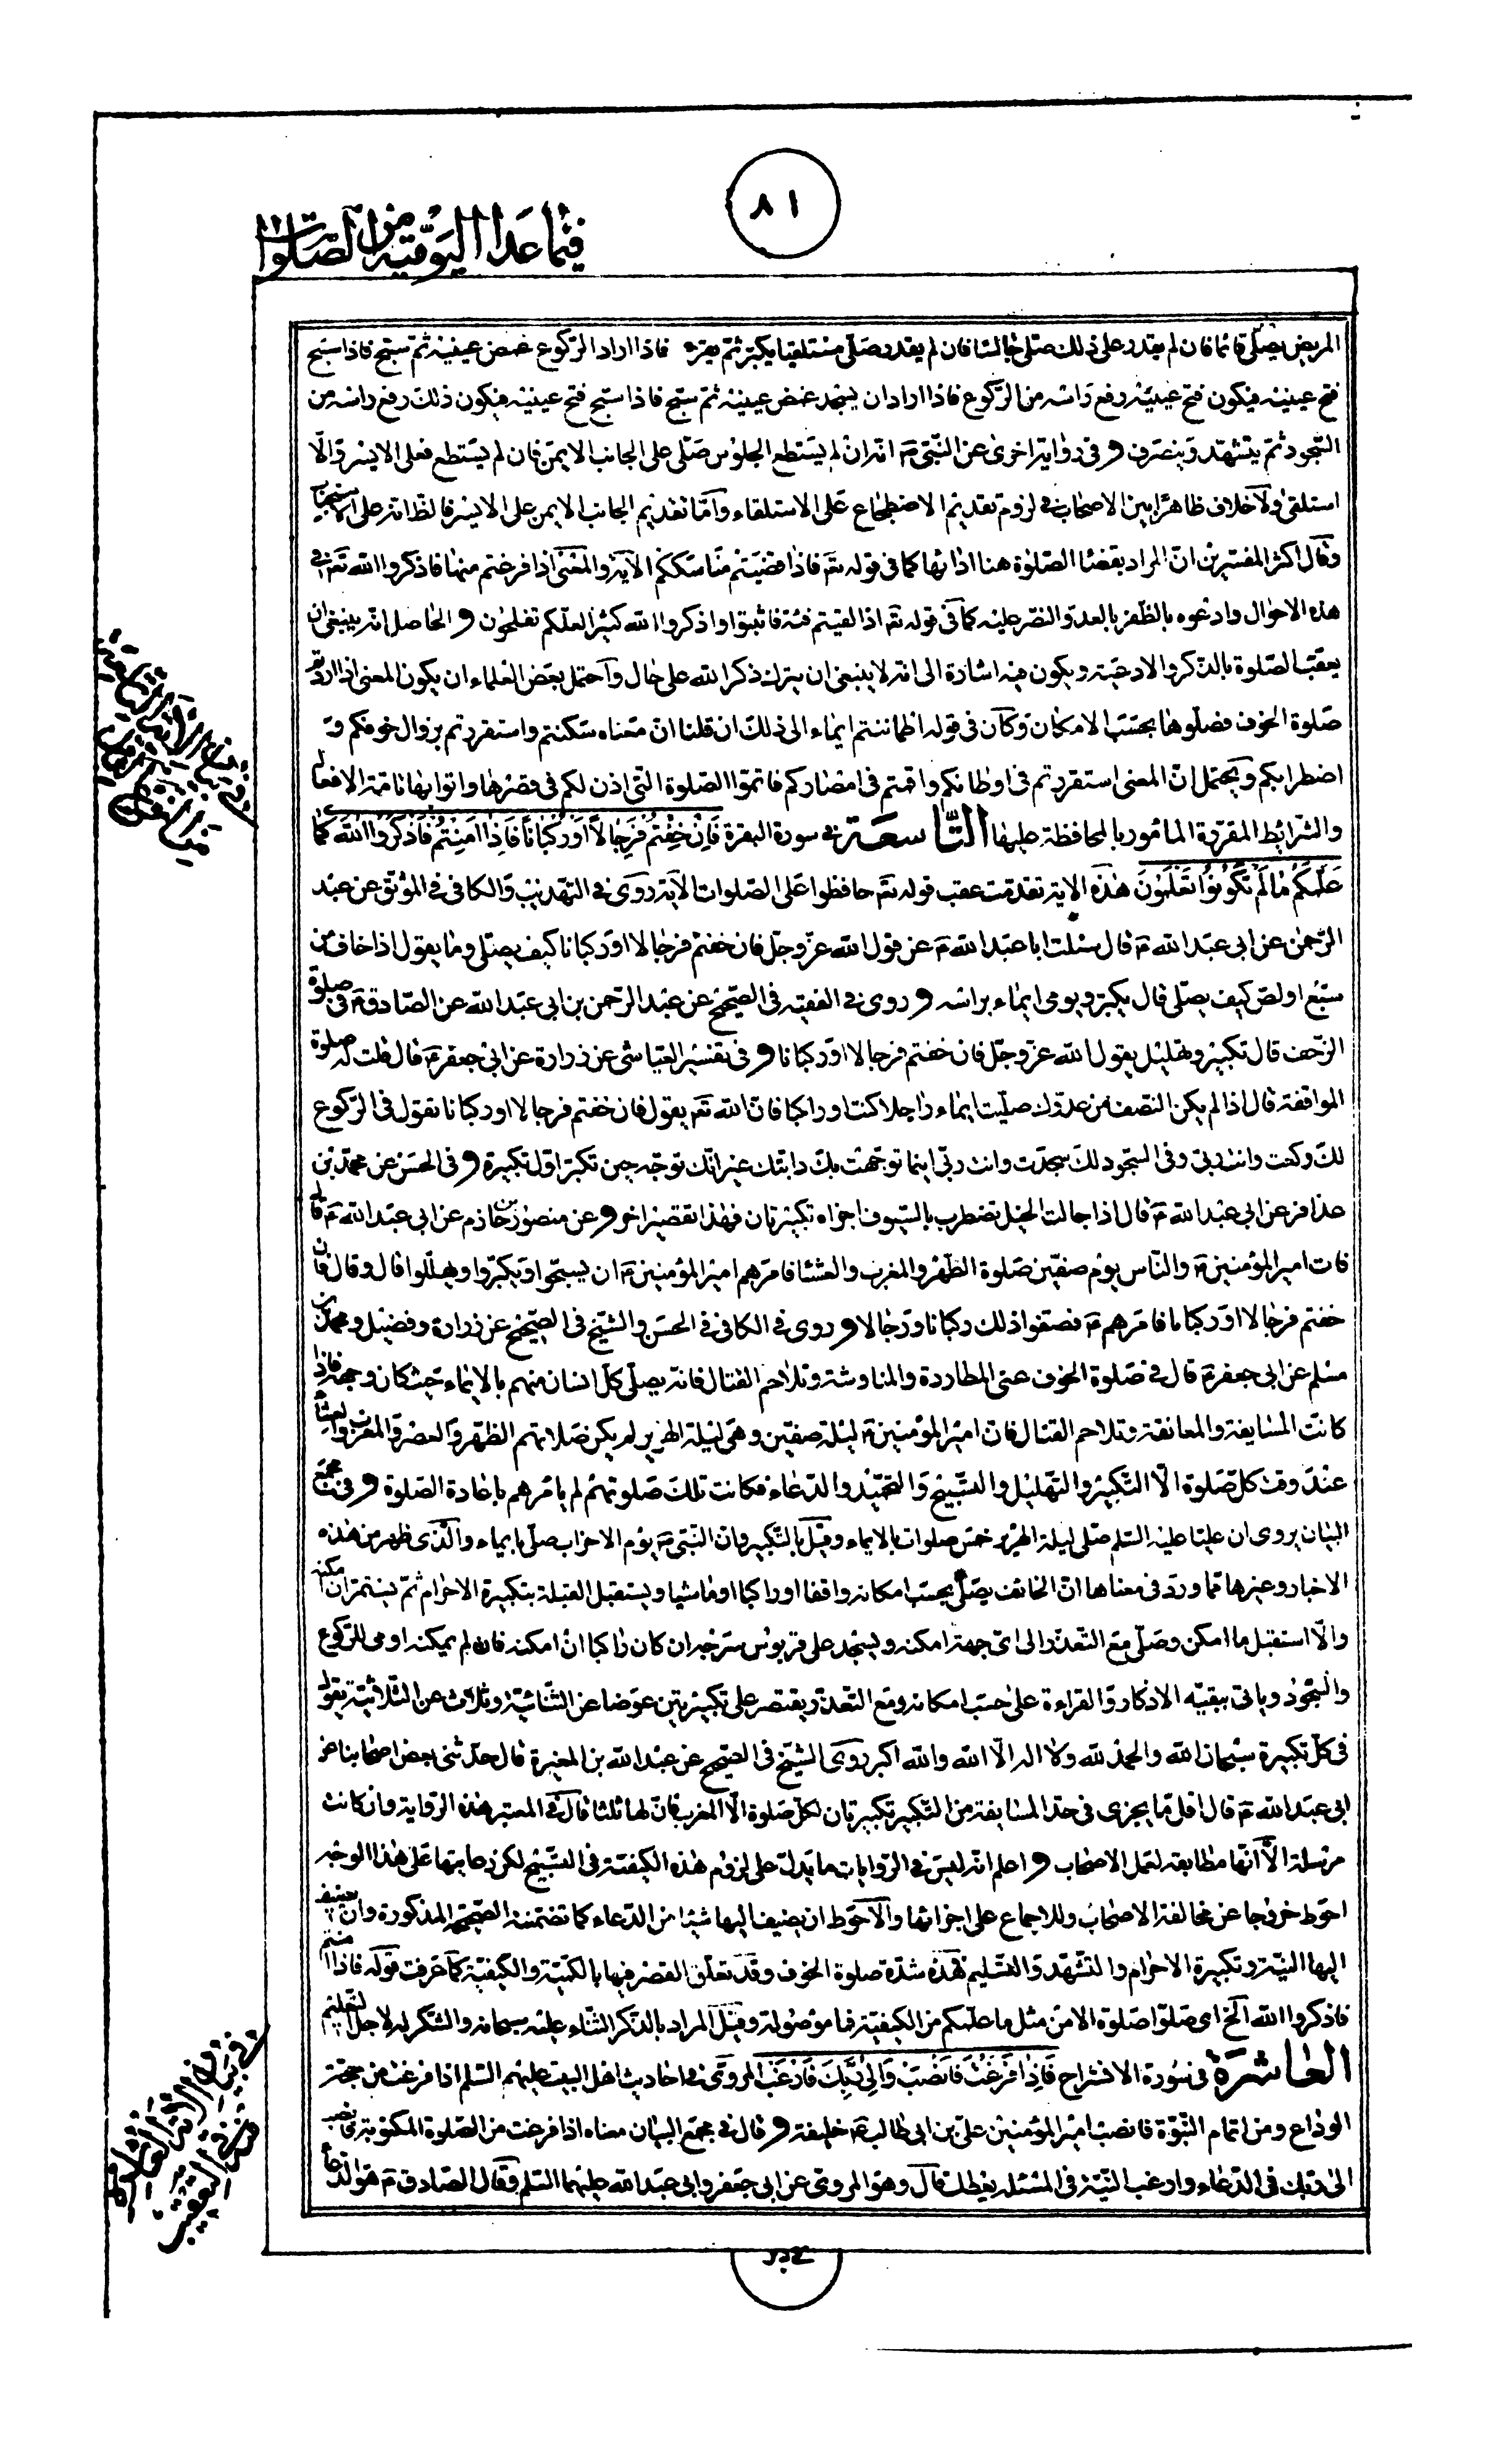 ٨١
فيما عدا اليومية من الصلوات
المريض يصلّى قائما فان لم يقدر على ذلك صلّى جالسا فان لم يقدر صلّى مستلقيا يكبّر ثمّ يقرء فاذا اراد الرّكوع غمض عينيه ثمّ سبّح فاذا سبّح
فتح عينيه فيكون فتح عينيه رفع راسه من الرّكوع فاذا اراد ان يسجد غمض عينيه ثمّ سبّح فاذا سبّح فتح عينيه فيكون ذلك رفع راسه من
السّجود ثمّ يتشهّد وينصرف و فى رواية اخرى عن النّبى ص انّه ان لم يستطع الجلوس صلّى على الجانب الايمن فان لم يستطع فعلى الايسر والّا
استلقى ولا خلاف ظاهرا بين الاصحاب فى لزوم تقديم الاضطجاع على الاستلقاء وامّا تقديم الجانب الايمن على الايسر فالظّ انه على الاستحباب
وقال اكثر المفسّرين انّ المراد بقضاء الصّلوة هنا ادائها كما فى قوله تع فاذا قضيتم مناسككم الآية والمعنى اذا فرغتم منها فاذكروا الله تع فى
هذه الاحوال وادعوه بالظّفر بالعدوّ والنّصر عليه كما فى قوله تع اذا لقيتم فئة فاثبتوا واذكروا الله كثيرا لعلّكم تفلحون و الحاصل انّه ينبغى ان
يعقب الصّلوة بالذّكر والادعية ويكون فيه اشارة الى انه لا ينبغى ان يترك ذكر الله على حال واحتمل بعض العلماء ان يكون المعنى اذا اردتم
صلوة الخوف فصلّوها بحسب الامكان وكان فى قوله اطماننتم ايماء الى ذلك ان قلنا انّ معناه سكنتم واستقررتم بزوال خوفكم و
اضطرابكم ويحتمل انّ المعنى استقررتم فى اوطانكم واقمتم فى امصاركم فاتمّوا الصّلوة الّتى اذن لكم فى قصرها واتوا بها تامّة الافعال
والشّرائط المقرّرة المامور بالمحافظة عليها التّاسعة فى سورة البقرة فان خفتم فرجالا او ركبانا فاذا امنتم فاذكروا الله كما
علّمكم ما لم تكونوا تعلمون هذه الاية تقدمت عقب قوله تع حافظوا على الصّلوات الآية روى فى التهذيب والكافى فى الموثق عن عبد
الرّحمن عن ابى عبد الله ع قال سئلت ابا عبد الله ع عن قول الله عزّ وجلّ فان خفتم فرجالا او ركبانا كيف يصلّى وما يقول اذا خاف من
سبع او لصّ كيف يصلّى قال يكبّر ويومى ايماء براسه و روى فى الفقيه فى الصّحيح عن عبد الرّحمن بن ابى عبد الله عن الصّادق ع فى صلوة
الزّحف قال تكبير وتهليل يقول الله عزّ وجلّ فان خفتم فرجالا او ركبانا و فى تفسير العيّاشى عن زرارة عن ابى جعفر ع قال قلت له صلوة
المواقفة قال اذا لم يكن النّصف من عدوّك صلّيت ايماء راجلا كنت او راكبا فانّ الله تع يقول فان خفتم فرجالا او ركبانا تقول فى الرّكوع
لك ركعت وانت ربّى وفى السّجود لك سجدت وانت ربّى اينما توجّهت بك دابّتك غير انّك توجّه حين تكبّر اوّل تكبيرة و فى الحسن عن محمّد بن
عذافر عن ابى عبد الله ع قال اذا جالت الخيل تضطرب بالسّيوف اجزاه تكبيرتان فهذا تقصير اخر و عن منصور بن حازم عن ابى عبد الله ع قال
فات امير المؤمنين ع والنّاس يوم صفّين صلوة الظّهر والمغرب والعشاء فامرهم امير المؤمنين ع ان يسبّحوا ويكبّروا ويهلّلوا قال وقال فان
خفتم فرجالا او ركبانا فامرهم ع فصنعوا ذلك ركبانا ورجالا و روى فى الكافى فى الحسن والشّيخ فى الصّحيح عن زرارة وفضيل ومحمد بن
مسلم عن ابى جعفر ع قال فى صلوة الخوف عند المطاردة والمناوشة وتلاحم القتال فانّه يصلّى كلّ انسان منهم بالايماء حيث كان وجهه فاذا
كانت المسايفة والمعانقة وتلاحم القتال فان امير المؤمنين ع ليلة صفّين وهى ليلة الهرير لم يكن صلاتهم الظّهر والعصر والمغرب والعشاء
عند وقت كلّ صلوة الّا التّكبير والتّهليل والتّسبيح والتّحميد والدّعاء فكانت تلك صلوتهم لم يامرهم باعادة الصّلوة و فى مجمع
البيان يروى ان عليّا عليه السّلم صلّى ليلة الهرير خمس صلوات بالايماء وقيل بالتّكبير وان النّبى ص يوم الاحزاب صلّى ايماء والّذى ظهر من هذه
الاخبار وغيرها ممّا ورد فى معناها انّ الخائف يصلّى بحسب امكانه واقفا او راكبا او ماشيا ويستقبل القبلة بتكبيرة الاحرام ثمّ يستمرّ ان امكنه
والّا استقبل ما امكن وصلّى مع التّعذّر الى اىّ جهة امكنه ويسجد على قربوس سرجه ان كان راكبا ان امكنه فان لم يمكنه اومى للرّكوع
والسّجود وياتى ببقيّه الاذكار والقراءة على حسب امكانه ومع التّعذّر يقتصر على تكبيرتين عوضا عن الثّنائيّة وثلاث عن الثّلاثيّة يقول
فى كلّ تكبيرة سبحان الله والحمد لله ولا اله الّا الله والله اكبر روى الشّيخ فى الصّحيح عن عبد الله بن المغيرة قال حدّثنى بعض اصحابنا عن
ابى عبد الله ع قال اقل ما يجزى فى حدّ المسايفة من التّكبير تكبيرتان لكلّ صلوة الّا المغرب فانّ لها ثلثا قال فى المعتبر هذه الرّواية وان كانت
مرسلة الّا انّها مطابقه لعمل الاصحاب و اعلم انّه ليس فى الرّوايات ما يدلّ على لزوم هذه الكيفيّة فى التّسبيح لكن رعايتها على هذا الوجه
احوط خروجا عن مخالفة الاصحاب وللاجماع على اجزائها والاحوط ان يضيف اليها شيئا من الدّعاء كما تضمّنته الصّحيحة المذكورة وان يضيف
اليها النيّة وتكبيرة الاحرام والتّشهّد والتّسليم فهذه شدّة صلوة الخوف وقد تعلّق القصر فيها بالكميّة والكيفيّة كما عرفت قوله فاذا امنتم
فاذكروا الله الخ اى صلّوا صلوة الامن مثل ما علّمكم من الكيفيّة فما موصولة وقيل المراد بالذّكر الثّناء عليه سبحانه والشّكر له لاجل التعليم
العاشرة فى سورة الانشراح فاذا فرغت فانصب والى ربّك فارغب المروىّ فى احاديث اهل البيت عليهم السّلم اذا فرغت من حجّة
الوداع ومن اتمام النّبوّة فانصب امير المؤمنين علىّ بن ابى طالب ع خليفة و قال فى مجمع البيان معناه اذا فرغت من الصّلوة المكتوبة فانصب
الى ربّك فى الدّعاء وارغب اليه فى المسئله يعطك قال وهو المروىّ عن ابى جعفر وابى عبد الله عليهما السّلم وقال الصّادق ع هو الدّعاء